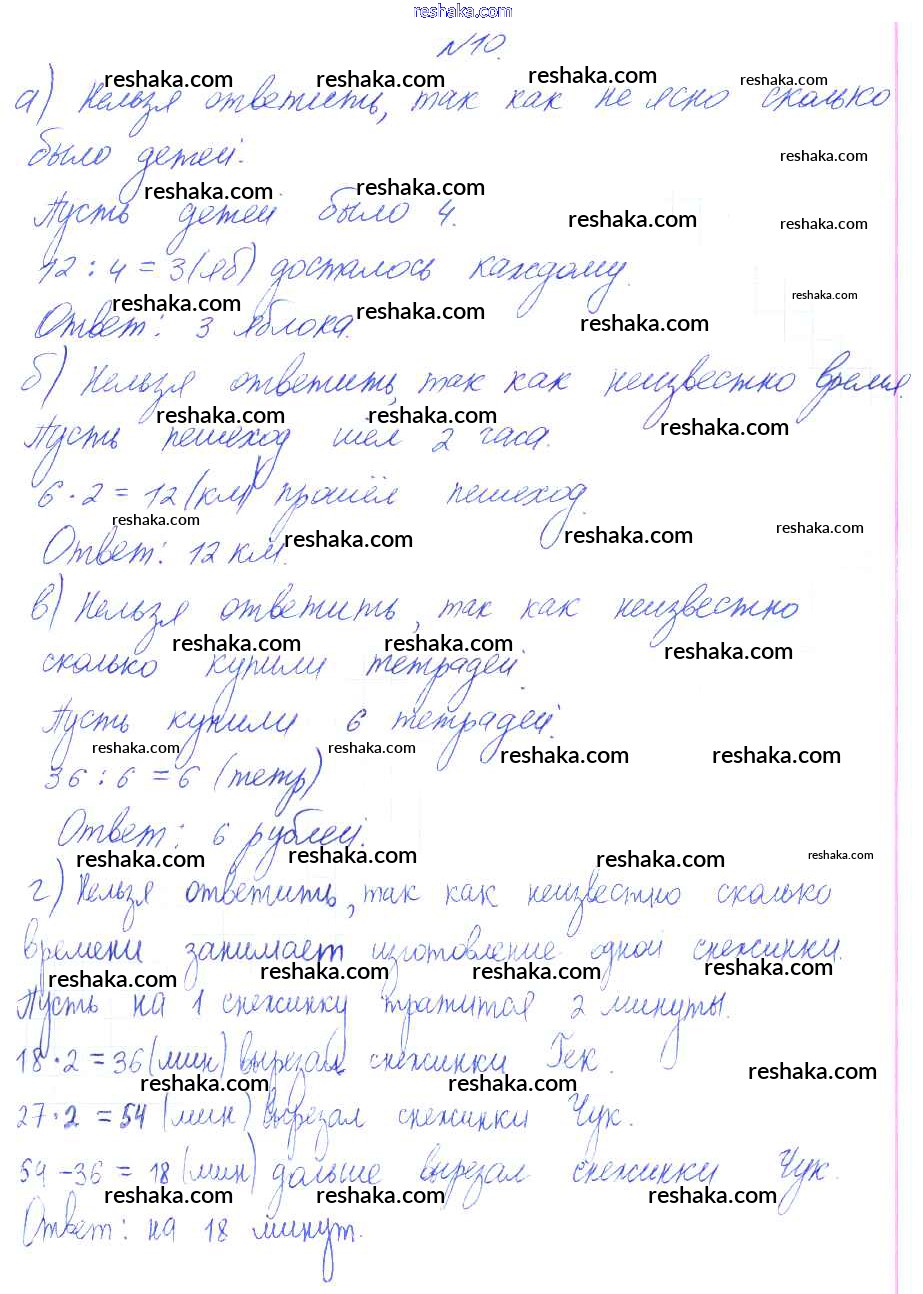 reshaka.com
№10.
reshaka.com reshaka.com reshaka.com reshaka.com
а) Нельзя ответить, так как не ясно сколько
было детей.
reshaka.com
reshaka.com reshaka.com
Пусть детей было 4.
reshaka.com reshaka.com
12 : 4 = 3 (яб) досталось каждому.
reshaka.com reshaka.com reshaka.com
Ответ: 3 яблока.
reshaka.com
б) Нельзя ответить, так как неизвестно время.
reshaka.com reshaka.com reshaka.com
Пусть пешеход шел 2 часа.
6 · 2 = 12 (км) прошёл пешеход.
reshaka.com reshaka.com reshaka.com reshaka.com
Ответ: 12 км.
в) Нельзя ответить, так как неизвестно
reshaka.com reshaka.com reshaka.com
сколько купили тетрадей.
Пусть купили 6 тетрадей.
reshaka.com reshaka.com reshaka.com reshaka.com
36 : 6 = 6 (тетр)
Ответ: 6 рублей.
reshaka.com reshaka.com reshaka.com reshaka.com
г) Нельзя ответить, так как неизвестно сколько
времени занимает изготовление одной снежинки.
reshaka.com reshaka.com reshaka.com reshaka.com
Пусть на 1 снежинку тратится 2 минуты.
18 · 2 = 36 (мин) вырезал снежинки Гек.
reshaka.com reshaka.com reshaka.com
27 · 2 = 54 (мин) вырезал снежинки Чук.
54 - 36 = 18 (мин) дольше вырезал снежинки Чук.
reshaka.com reshaka.com reshaka.com
Ответ: на 18 минут.